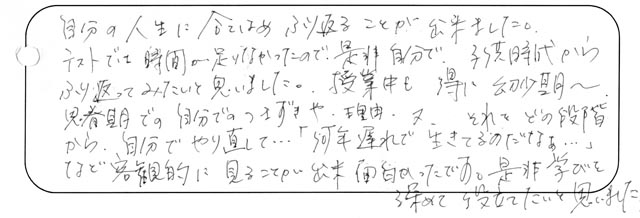 自分の人生に合てはめ ふり返ることが出来ました。
テストでは時間が足りなかったので、是非自分で、子供時代から
ふり返ってみたいと思いました。授業中も 特に 幼少期〜
思春期での自分でのつまずきや、理由、又、それをどの段階
から、自分でやり直して…「何年遅れで生きてるのだなぁ…」
など客観的に見ることが出来面白かったです。是非学びを
深めて役立てたいと思いました